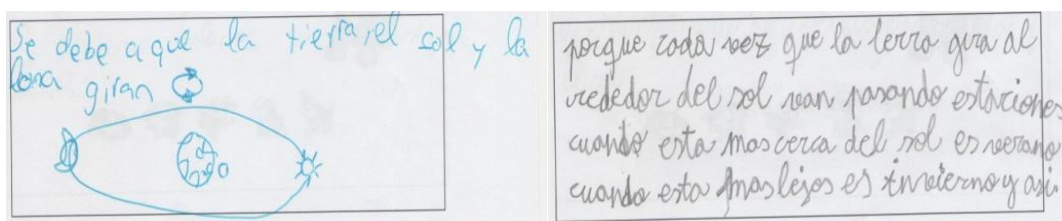 Se debe a que la tierra, el sol y la
lona giran
porque cada vez que la terra gira al
rededor del sol van pasando estaciones
cuando esta mas cerca del sol es verano
cuando esta mas lejos es invierno y asi.